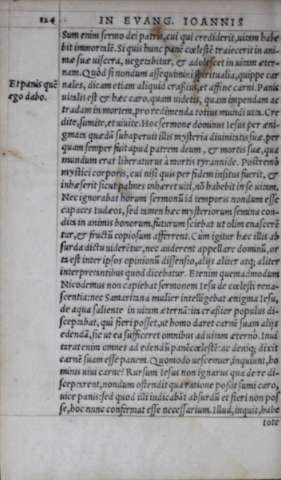 124 IN EVANG. IOANNIS
Sum enim sermo dei patris, cui qui crediderit, uitam habe
bit immortalē. Si quis hunc panē cœlestē traiecerit in ani-
mæ suæ uiscera, uegetabitur, & adolescet in uitam æter-
nam. Quòd si nondum assequimini spiritualia, quippe car
nales, dicam etiam aliquid crassius, et affine carni. Panis
Et panis quē
ego dabo.
uitalis est & hæc caro, quam uidetis, quam impendam ac
tradam in mortem, pro redimenda totius mundi uita. Cre
dite, sumite, et uiuite. Hoc sermone dominus Iesus per æni-
gmata quædā subaperuit illis mysteria diuinitatis suæ, per
quam semper fuit apud patrem deum, & mortis suæ, qua
mundum erat liberaturus à mortis tyrannide. Postremò
mystici corporis, cui nisi quis per fidem insitus fuerit, &
inhæserit sicut palmes inhæret uiti, nō habebit in se uitam.
Nec ignorabat horum sermonū id temporis nondum esse
capaces Iudæos, sed tamen hæc mysteriorum semina con-
dita in animis bonorum, futurum sciebat ut olim enasceren
tur, & fructū copiosum afferrent. Cùm igitur hæc illis ab
surda dictu uiderētur, nec auderent appellare dominū, or
ta est inter ipsos opinionū dissensio, alijs aliter atq; aliter
interpretantibus quod dicebatur. Etenim quemadmodum
Nicodemus non capiebat sermonem Iesu de cœlesti rena-
scentia: nec Samaritana mulier intelligebat ænigma Iesu,
de aqua saliente in uitam æternā: ita crassior populus di-
sceptabat, quî fieri posset, ut homo daret carnē suam alijs
edendā, sic ut ea sufficeret omnibus ad uitam æternā. Inui
turat enim omnes ad edendū panē cœlestē: ac deniq; dixit
carnē suam esse panem. Quomodo uescemur, inquiunt, ho
minis uiui carne? Rursum Iesus non ignarus qua de re di-
sceptarent, nondum ostendit qua ratione possit sumi caro,
uice panis: sed quod illi iudicabāt absurdū et fieri non pos
se, hoc nunc confirmat esse necessarium. Illud, inquit, habe
tote